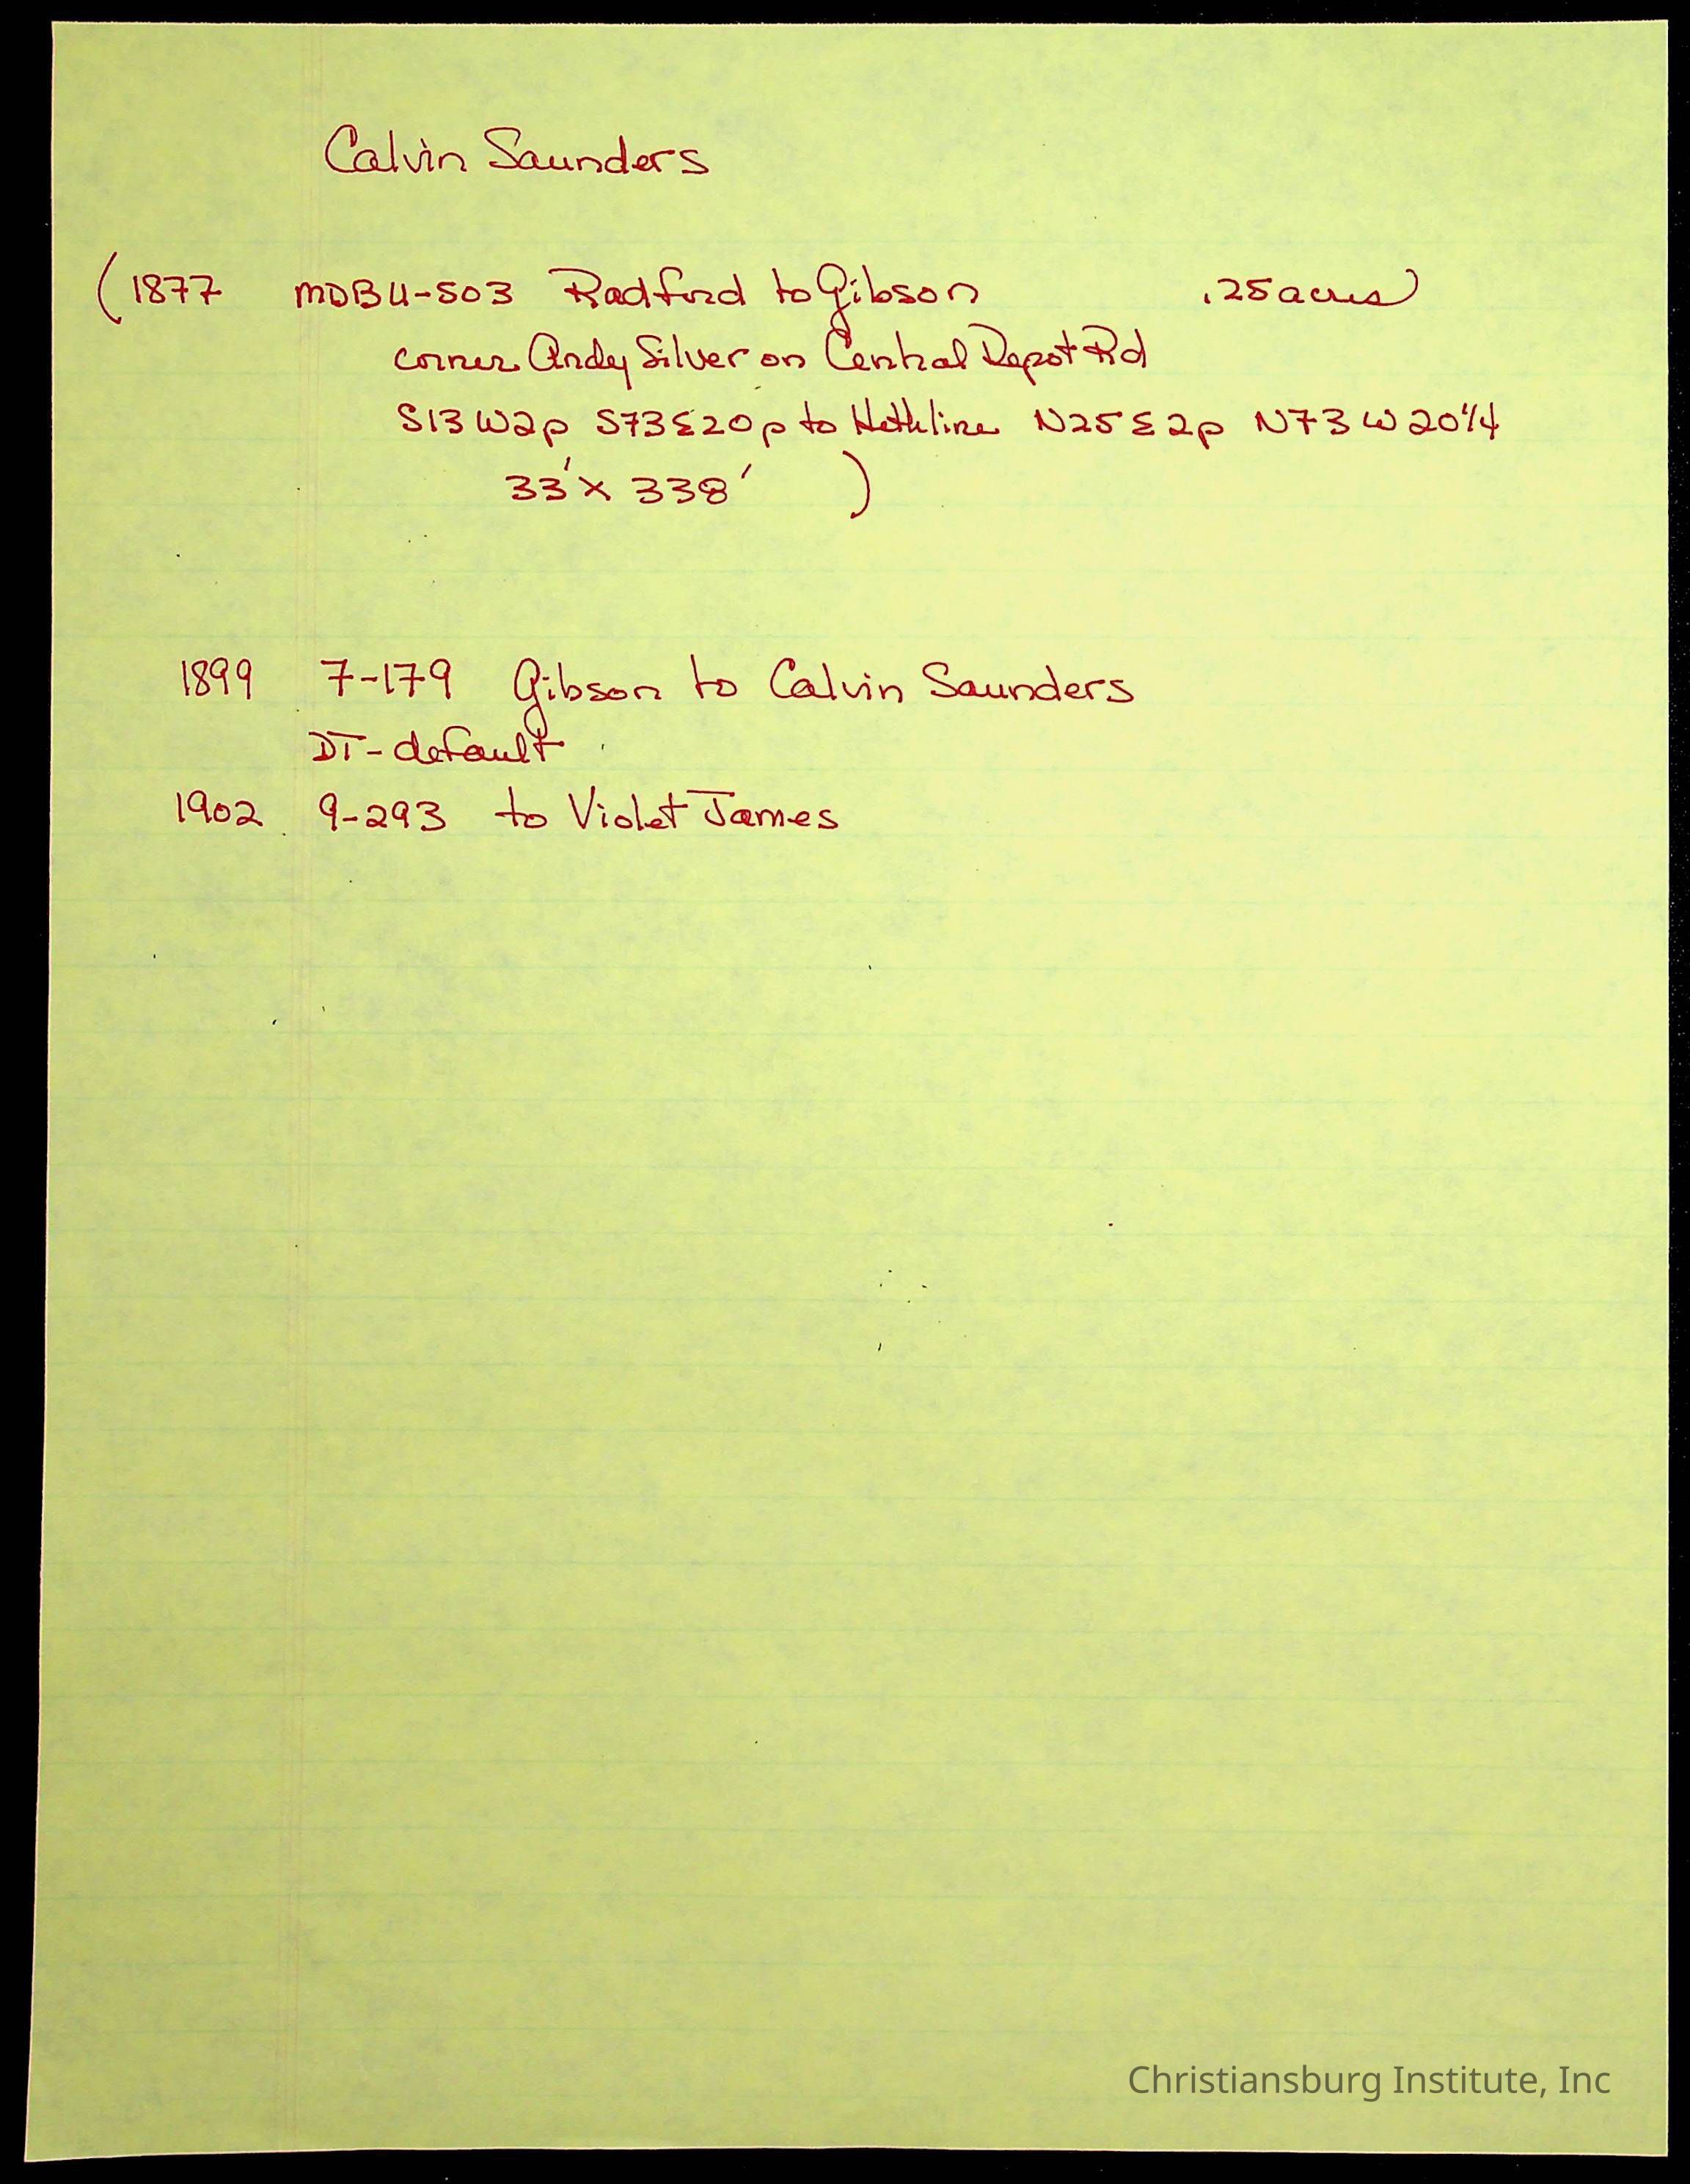 Calvin Saunders
(1877 MDBU-503 Radford to Gibson .25 acres
corner Andy Silver on Central Depot Rd
S13W2p S73E20p to Heth line N25E2p N73W20¼
33' x 338' )
1899 7-179 Gibson to Calvin Saunders
DT-default
1902 9-293 to Violet James
Christiansburg Institute, Inc